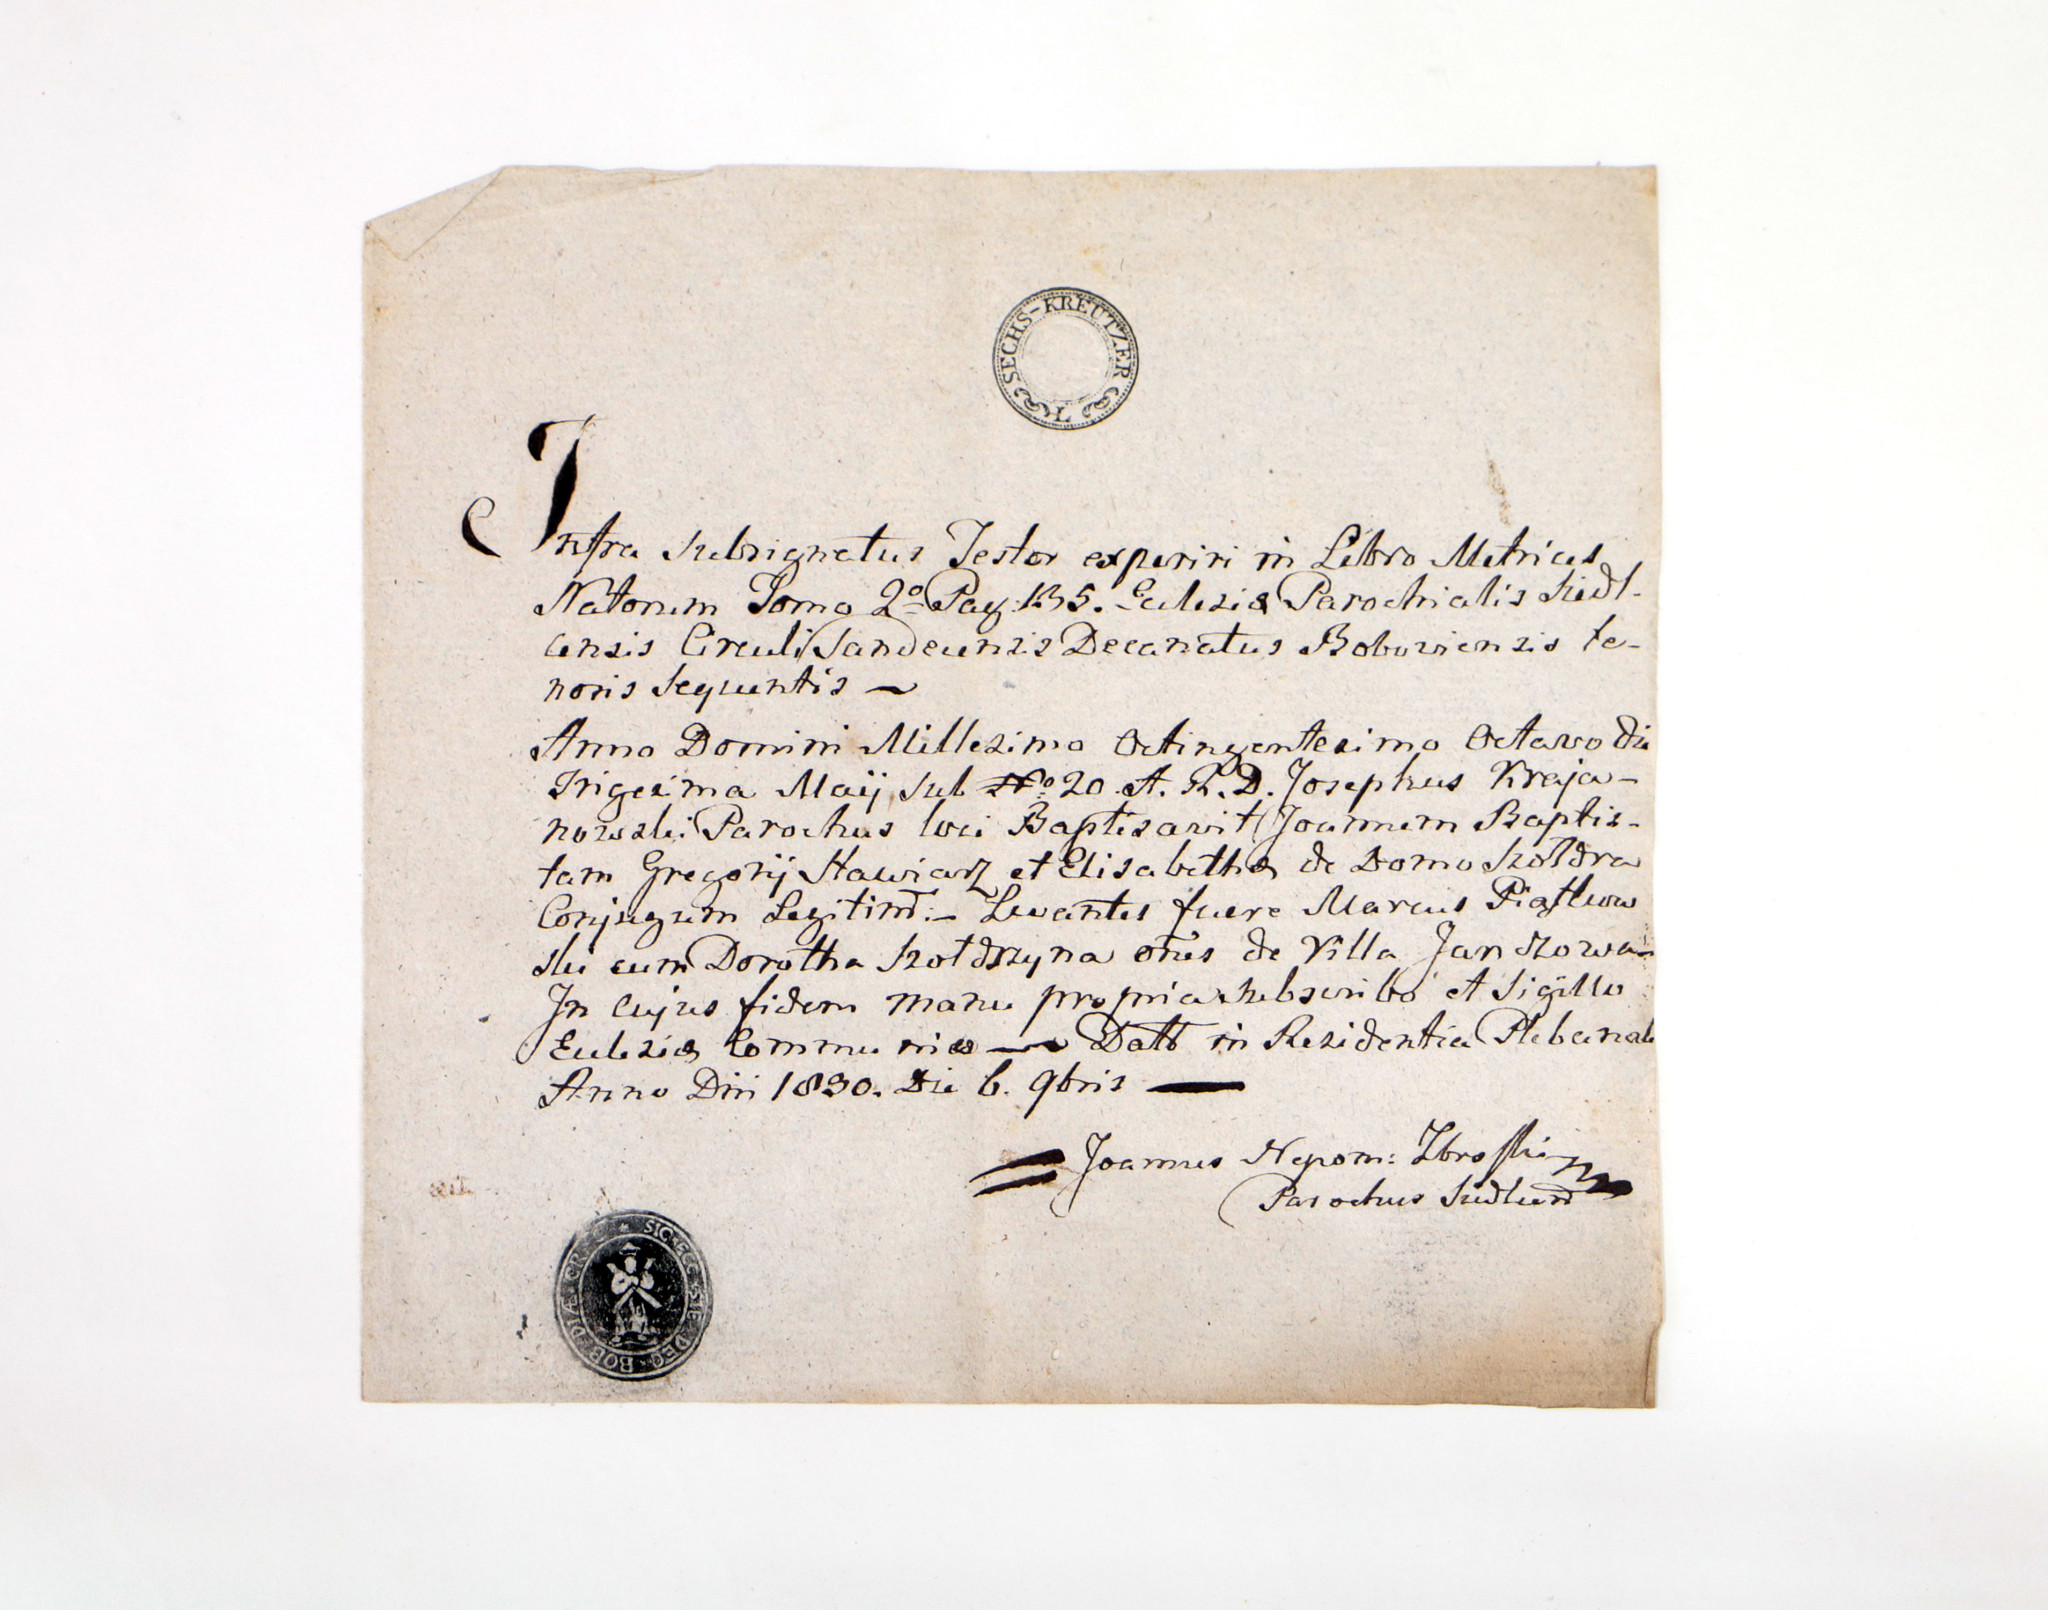 SECHS-KREUTZER
Infra Subsignatus Testor experiri in Libro Metrices
Natorum Tomo 2º Pag: 135. Eclesiæ Parochialis Siedl-
censis Circuli Sandecensis Decanatus Bobowiensis te-
noris sequentis —
Anno Domini Millesimo Octingentesimo Octavo die
Trigesima Maij sub Nº 20 A. R. D. Josephus Kraja-
nowski Parochus loci Baptisavit Joannem Baptis-
tam Gregorij Stawiarz et Elisabethæ de Domo Szołdra
Conjugum Legitim: — Levantes fuere Marcus Piątkow
ski cum Dorotha Szołdrzyna oñes de Villa Janczowa —
In cujus fidem manu propria subscribo et Sigillo
Eclesiæ Communico — Datt in Residentia Plebanali
Anno Dñi 1830. Die 6. 9bris —
Joannes Nepom:
Parochus
BOB